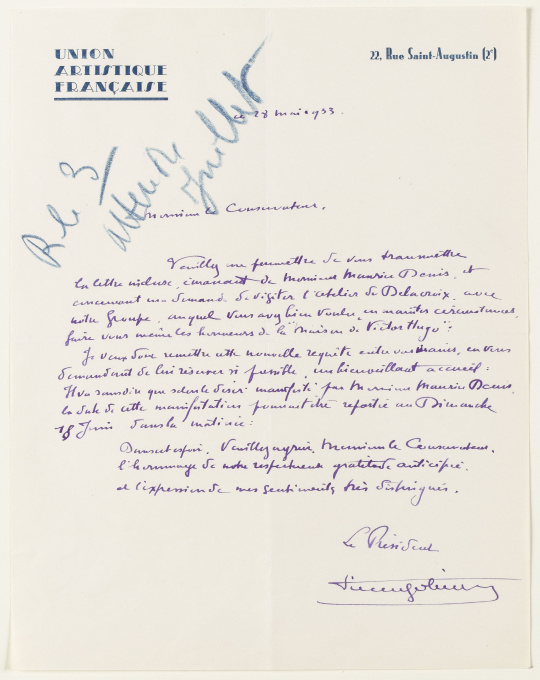 UNION
ARTISTIQUE
FRANÇAISE
22, Rue Saint-Augustin (2e)
ce 28 mai 1933.
R le 3
attendre
Juillet
Monsieur le Conservateur,
Veuillez me permettre de vous transmettre
la lettre incluse, émanant de Monsieur Maurice Denis, et
concernant une demande de visiter l'atelier de Delacroix, avec
notre Groupe, auquel vous avez bien voulu, en maintes circonstances,
faire vous même les honneurs de la "Maison de Victor Hugo":
Je veux donc remettre cette nouvelle requête entre vos mains, en vous
demandant de lui réserver si possible, un bienveillant accueil:
Il va sans dire que selon le désir manifesté par Monsieur Maurice Denis,
la date de cette manifestation pourrait être reportée au Dimanche
18 Juin dans la matinée:
Dans cet espoir, Veuillez agréer, Monsieur le Conservateur,
l'hommage de notre respectueuse gratitude anticipée.
et l'expression de mes sentiments très distingués.
Le Président